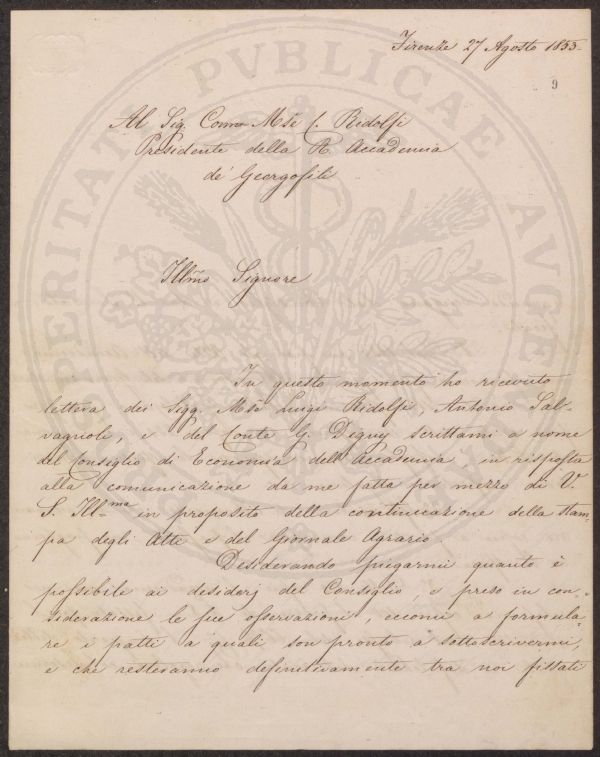 Firenze 27 Agosto 1853
9
Al Sig. Comm Mse C. Ridolfi
Presidente della R. Accademia
de' Georgofili
Illmo Signore
In questo momento ho ricevuto
lettera dei Sigg. Mse Luigi Ridolfi, Antonio Sal-
vagnoli, e del Conte G. Digny scrittami a nome
del Consiglio di Economia dell'Accademia, in risposta
alla comunicazione da me fatta per mezzo di V.
S. Ill-ma in proposito della continuazione della stam-
pa degli Atti e del Giornale Agrario.
Desiderando piegarmi quanto è
possibile ai desiderj del Consiglio, e preso in con-
siderazione le sue osservazioni, eccomi a formula-
re i patti a quali son pronto a sottoscrivermi,
e che resteranno definitivamente tra noi fissati
PROSPERITATI PUBLICAE AUGENDAE